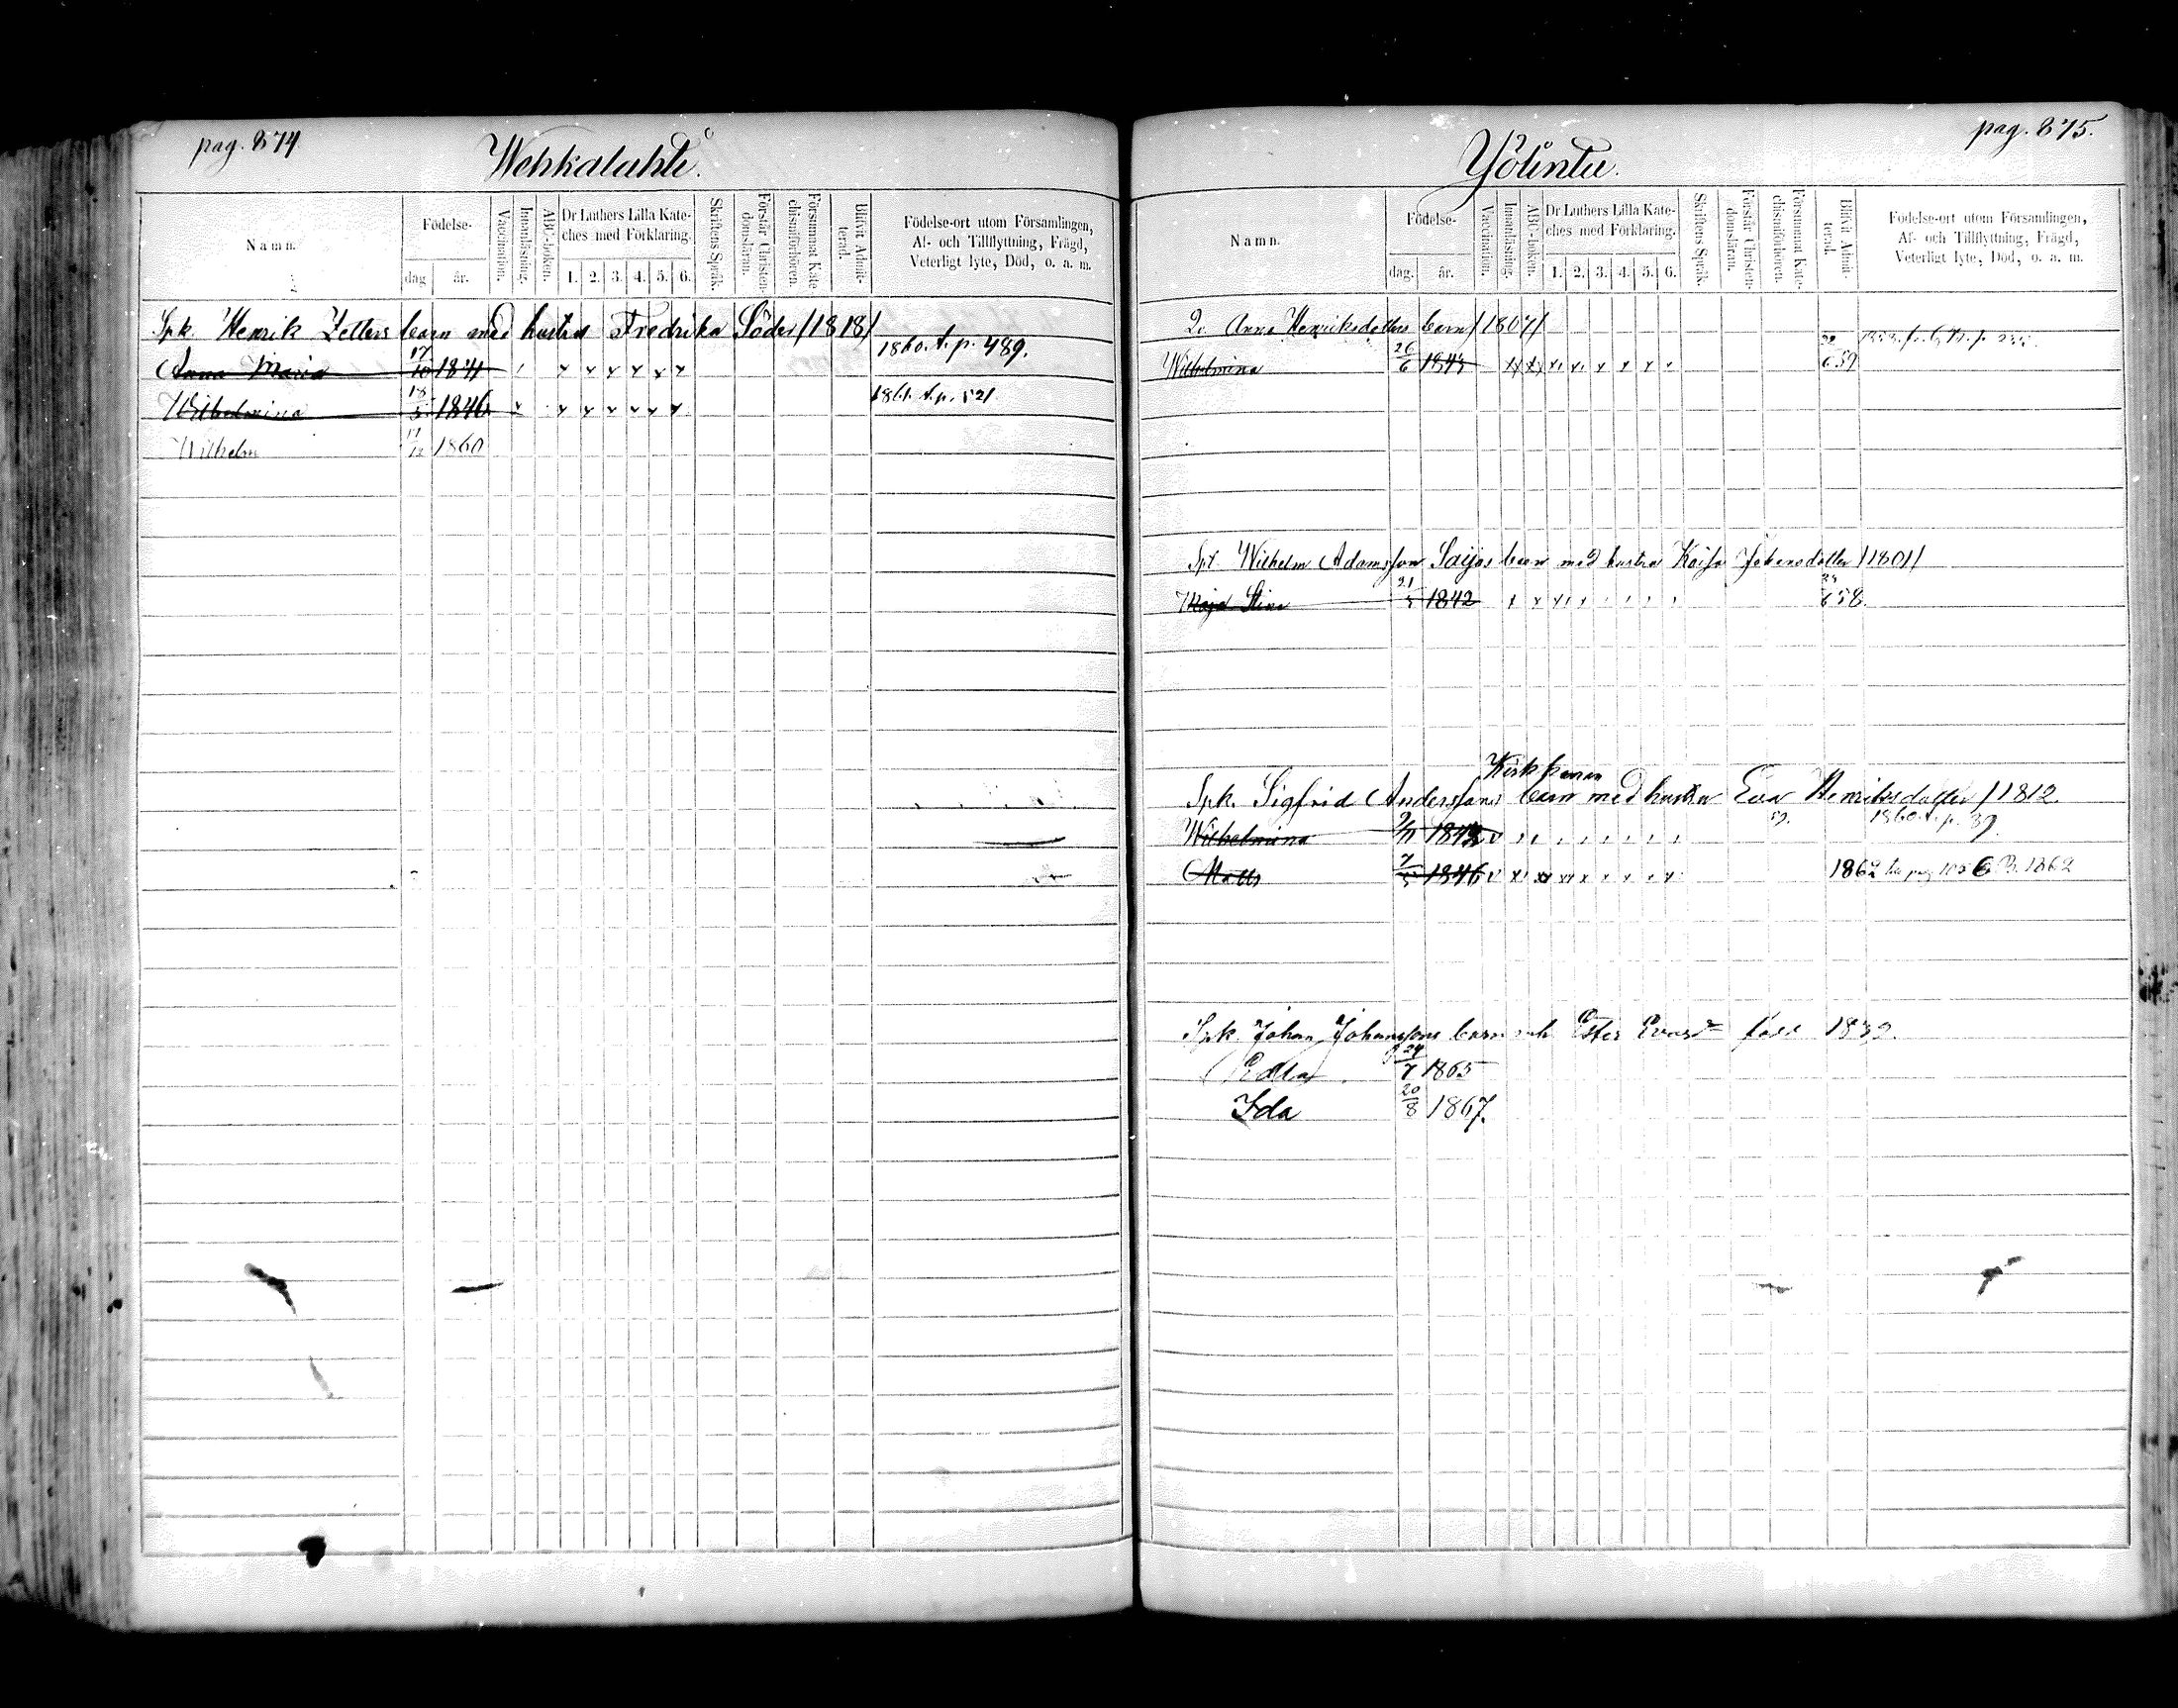 pag. 874
Wehkalahti.
Namn.
Födelse-
dag
år.
Vaccination.
Innanläsning.
ABC-boken.
Dr Luthers Lilla Kate-
ches med Förklaring.
1. 2. 3. 4. 5. 6.
Skriftens Språk.
Förstår Christen-
domsläran.
Försummat Kate-
chismiförhören.
Blifvit Admit-
terad.
Födelse-ort utom Församlingen,
Af- och Tillflyttning, Frägd,
Veterligt lyte, Död, o. a. m.
Spk. Henrik Zetters barn med hustru Fredrika Söder /1818/
Anna Maria 17/10 1841 1860. t. p. 489.
Wilhelmina 18/5 1846 1861. t. p. 521
Wilhelm 17/12 1860
pag. 875.
Yölintu.
Namn.
Födelse-
dag.
år.
Vaccination.
Innanläsning.
ABC-boken.
Dr Luthers Lilla Kate-
ches med Förklaring.
1. 2. 3. 4. 5. 6.
Skriftens Språk.
Förstår Christen-
domsläran.
Försummat Kate-
chismiförhören.
Blifvit Admit-
terad.
Födelse-ort utom Församlingen,
Af- och Tillflyttning, Frägd,
Veterligt lyte, Död, o. a. m.
Anna Henriksdotters barn /1807/
Wilhelmina 26/6 1843 6 59
Wilhelm Adamsson Saijas barn med hustru Kaisa Johansdotter /1801/
Maja Stina 21/5 1842 6 58.
Spk. Sigfrid Anderssons barn med hustru Eva Henriksdotter /1812.
Wilhelmina 9/11 1842 1860. t. p. 39.
Matts 7/5 1846 1862
Spk. Johan Johanssons barn Ester 1832.
Edla 24/7 1865
Ida 20/8 1867.